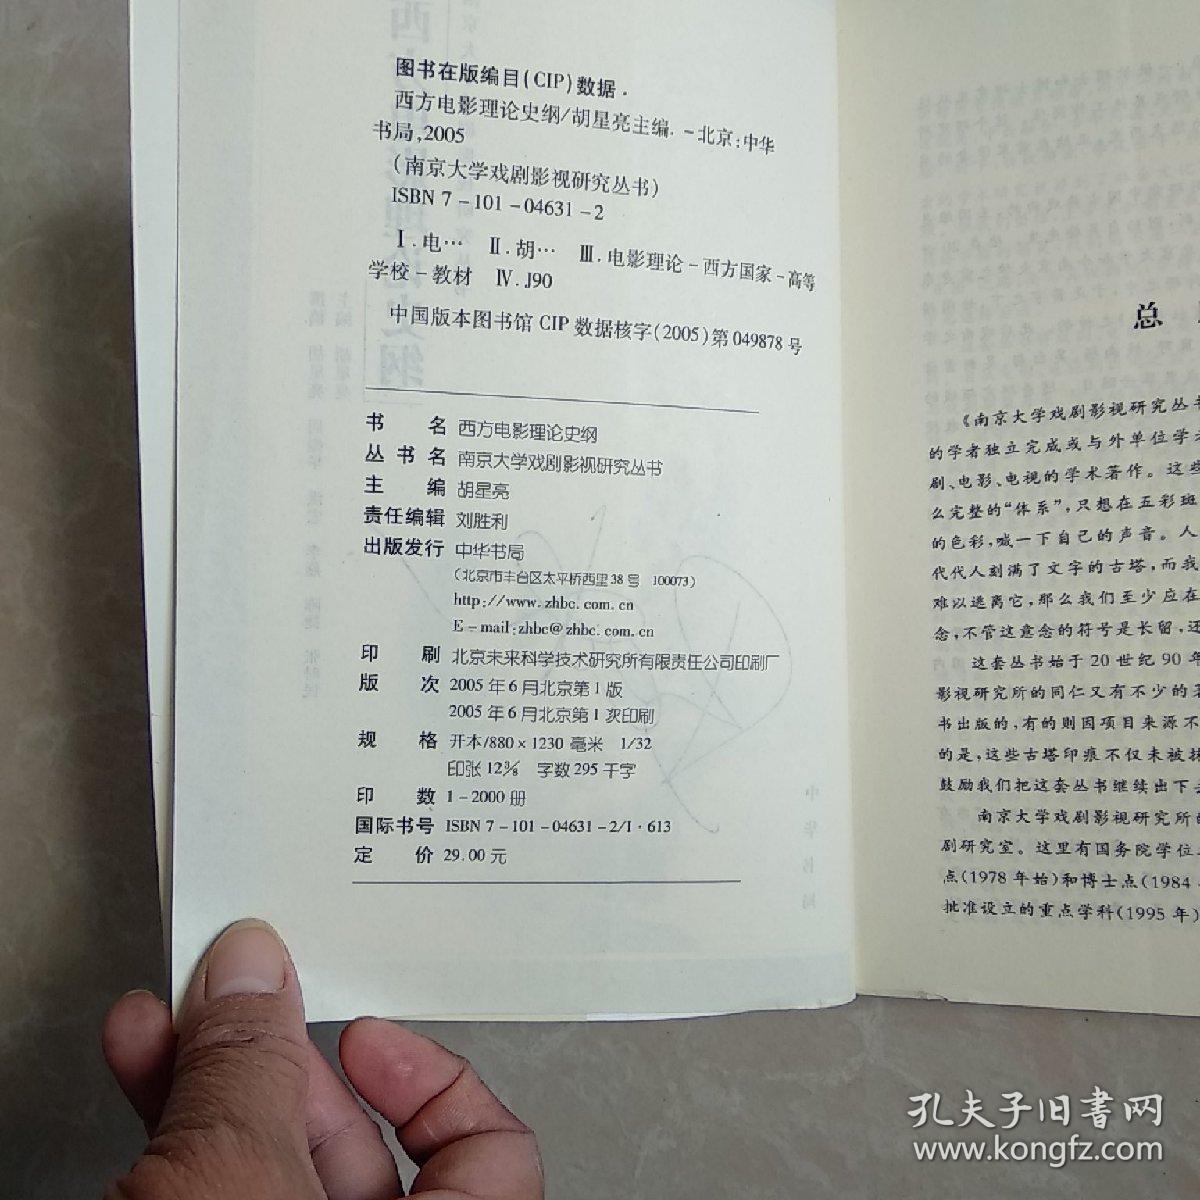 图书在版编目(CIP)数据.
西方电影理论史纲/胡星亮主编.-北京:中华
书局,2005
(南京大学戏剧影视研究丛书)
ISBN 7-101-04631-2
Ⅰ.电… Ⅱ.胡… Ⅲ.电影理论-西方国家-高等
学校-教材 Ⅳ.J90
中国版本图书馆CIP数据核字(2005)第049878号
书 名 西方电影理论史纲
丛书名 南京大学戏剧影视研究丛书
主 编 胡星亮
责任编辑 刘胜利
出版发行 中华书局
(北京市丰台区太平桥西里38号 100073)
http://www.zhbc.com.cn
E-mail:zhbc@zhbc.com.cn
印 刷 北京未来科学技术研究所有限责任公司印刷厂
版 次 2005年6月北京第1版
2005年6月北京第1次印刷
规 格 开本/880×1230毫米 1/32
印张12⅜ 字数295千字
印 数 1-2000册
国际书号 ISBN 7-101-04631-2/I·613
定 价 29.00元
总
《南京大学戏剧影视研究丛书
的学者独立完成或与外单位学
剧、电影、电视的学术著作。这些
么完整的“体系”,只想在五彩斑
的色彩,喊一下自己的声音。人
代代人刻满了文字的古塔,而我
难以逃离它,那么我们至少应在
念,不管这意念的符号是长留,还
这套丛书始于20世纪90年
影视研究所的同仁又有不少的著
书出版的,有的则因项目来源不
的是,这些古塔印痕不仅未被抹
鼓励我们把这套丛书继续出下去
南京大学戏剧影视研究所的
剧研究室。这里有国务院学位
点(1978年始)和博士点(1984
批准设立的重点学科(1995年)
孔夫子旧书网
www.kongfz.com